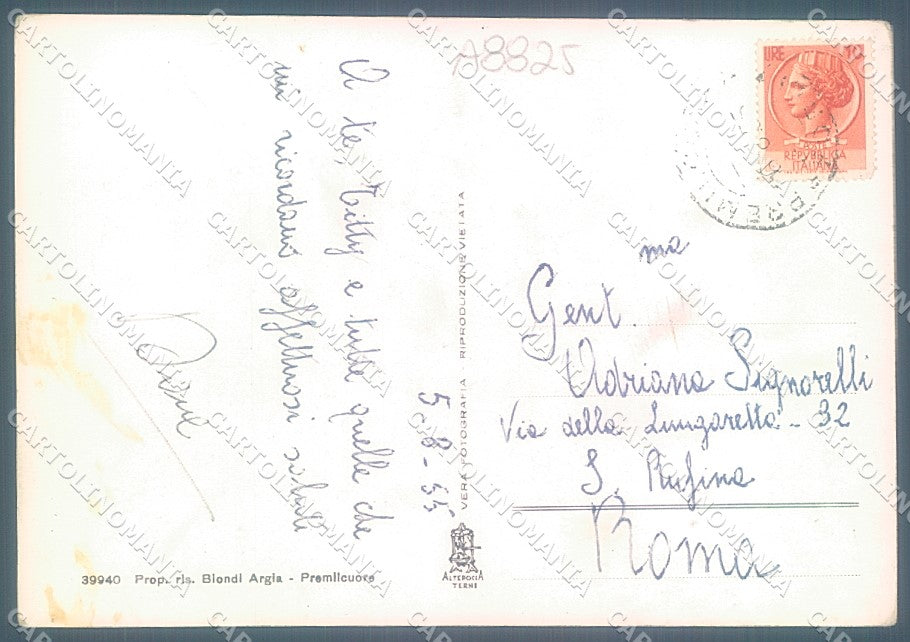 A8825
A te, Titty e tutte quelle che
mi ricordano affettuosi saluti
5-8-55
VERA FOTOGRAFIA - RIPRODUZIONE VIETATA
LIRE 10
POSTE
REPVBBLICA
ITALIANA
Gent.ma
Adriana Signorelli
Via della Lungaretta - 32
S. Rufina
Roma
ALTEROCCA
TERNI
39940 Prop. ris. Biondi Argia - Premilcuore
CARTOLINOMANIA